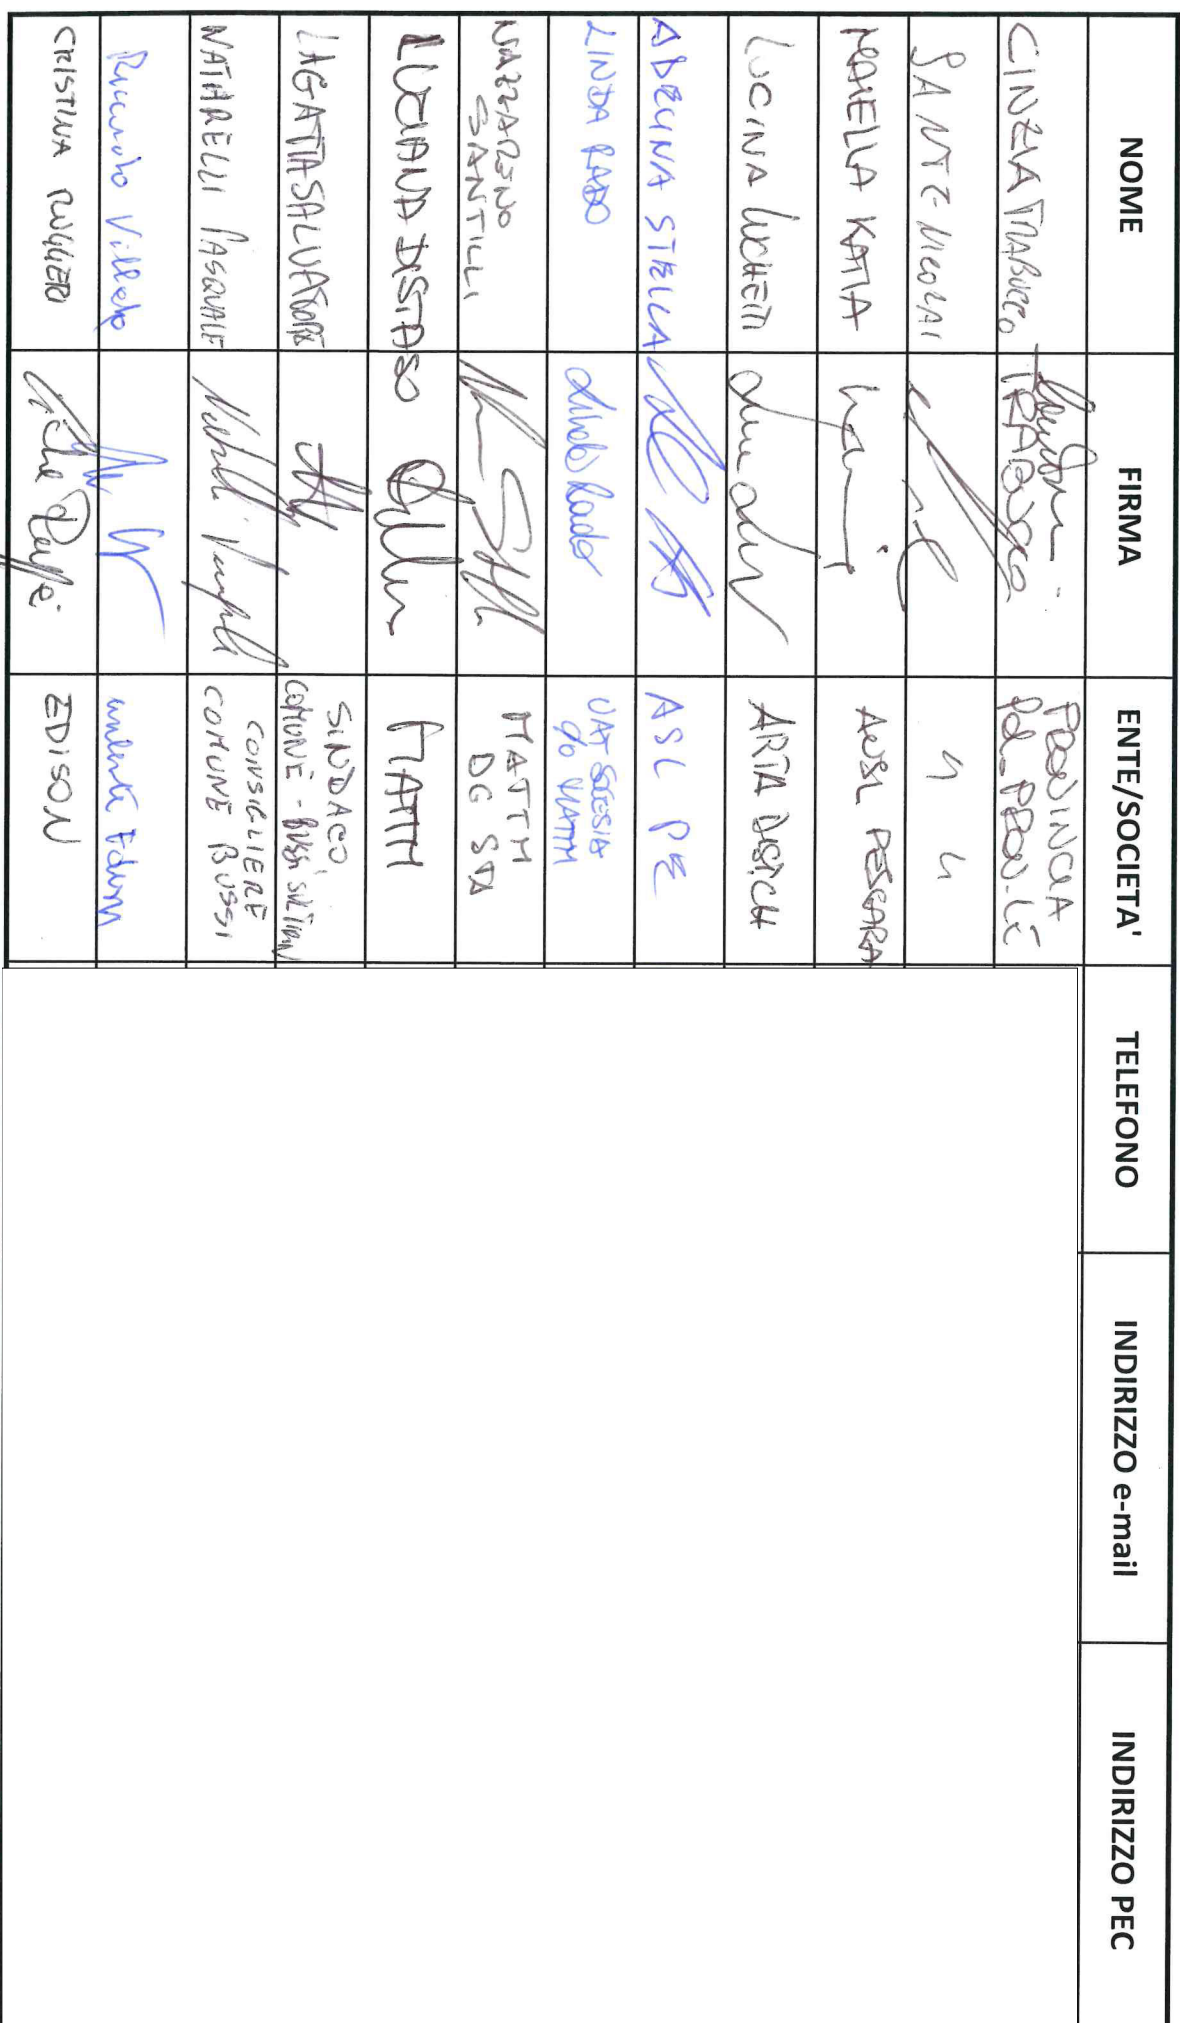 NOME FIRMA ENTE/SOCIETA' TELEFONO INDIRIZZO e-mail INDIRIZZO PEC
CINZIA TRABUCCO TRABUCCO PROVINCIA
SANTE NICOLAI " "
MAIELLA KATIA AUSL PESCARA
LUCINA LUCHETTI ARTA
ADELINA STELLA ASL PE
LINDA RADO Linda Rado UAT SOGESID
c/o MATTM
NAZZARENO
SANTILLI MATTM
DG STA
LUCIANA DISTASO MATTM
LAGATTA SALVATORE SINDACO
COMUNE - BUSSI SUL TIRINO
NATARELLI PASQUALE CONSIGLIERE
COMUNE BUSSI
Riccardo Edison
CRISTINA RUGGERI EDISON